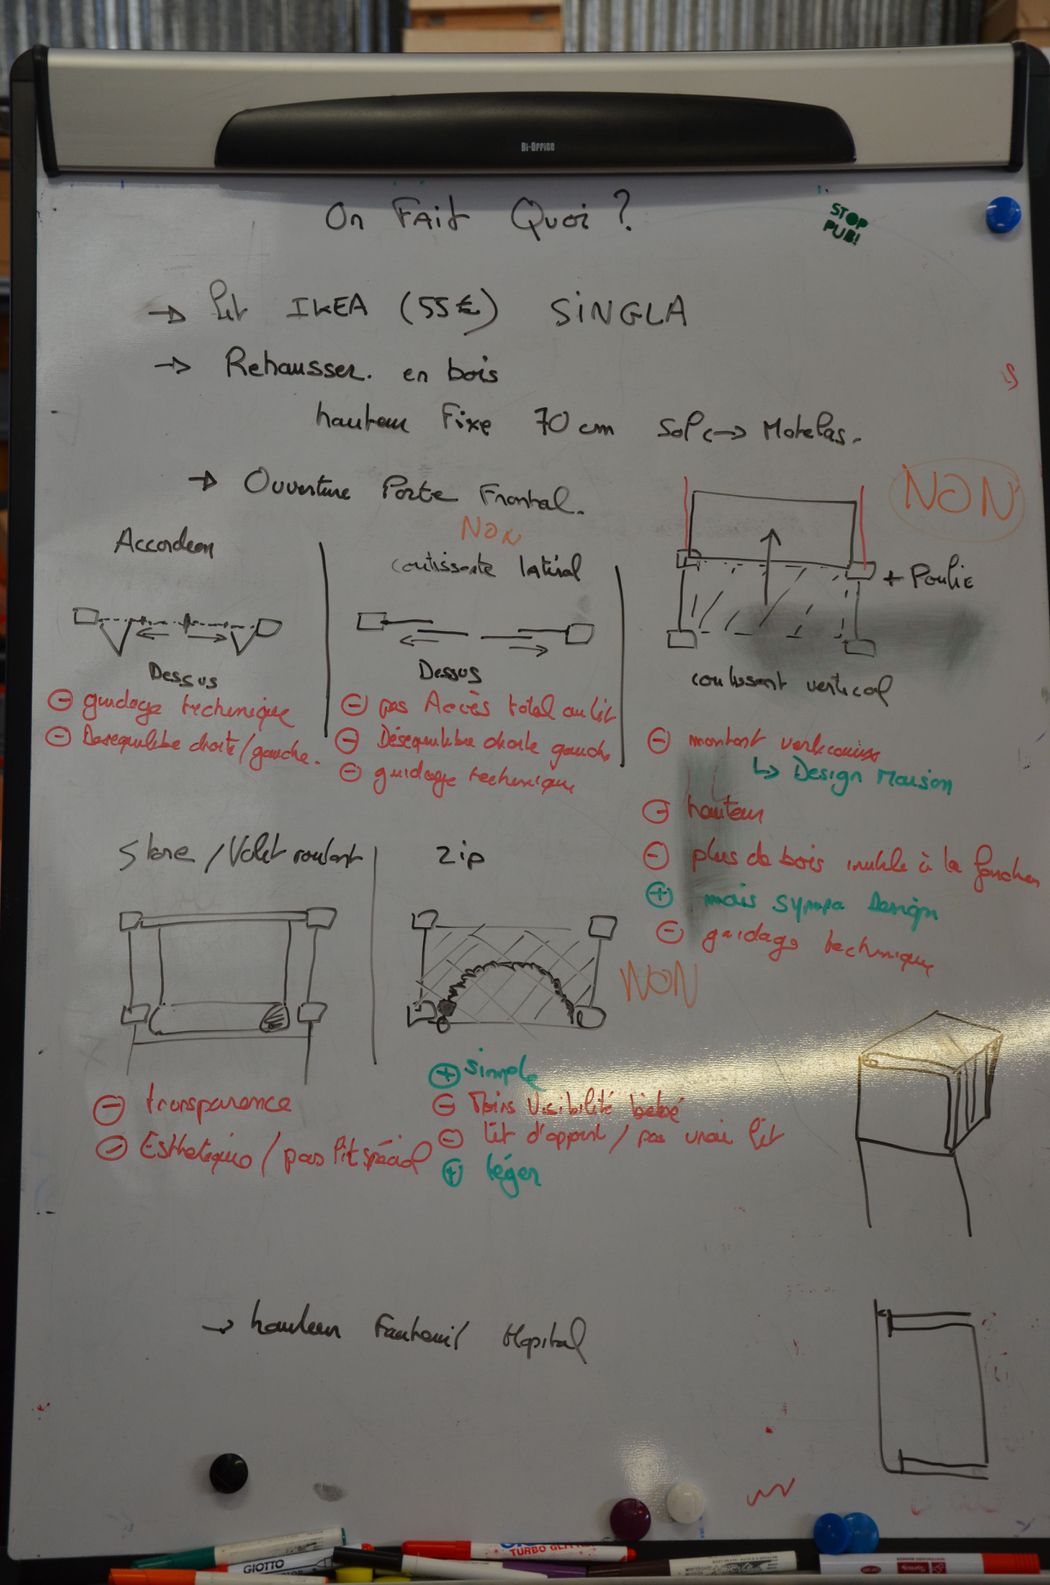 Bi-Office
On Fait Quoi ?
STOP
PUB!
→ lit IKEA (55€) SiNGLA
→ Rehausser. en bois
hauteur Fixe 70 cm Sol ↔ Matelas.
→ Ouverture Porte Frontal.
NON
NON
Accordeon
coulissante latéral
+ Poulie
Dessus
Dessus
coulissant vertical
⊖ guidage technique
⊖ Desequilibre droite/gauche.
⊖ pas Accès total au lit
⊖ Désequilibre droite gauche
⊖ guidage technique
⊖ montant verticaux
↳ Design Maison
⊖ hauteur
⊖ plus de bois inutile à la fonction
⊕ mais sympa Design
⊖ guidage technique
Store / Volet roulant
Zip
NON
⊖ transparence
⊖ Esthetique / pas lit spécial
⊕ simple
⊖ Moins Visibilité bébé
⊖ lit d'appoint / pas vrai lit
⊕ léger
→ hauteur Fauteuil Hopital
GIOTTO
TURBO